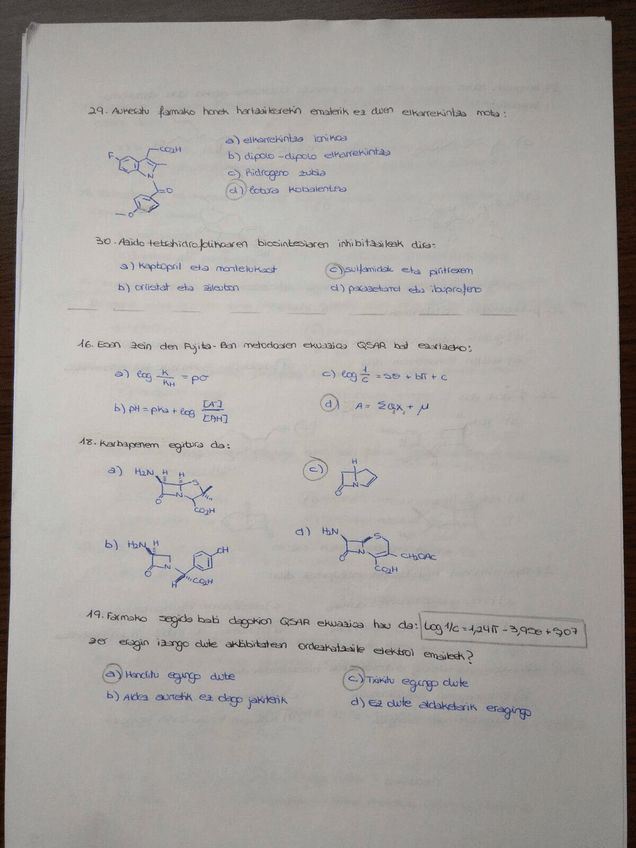 29. Aukeratu farmako honek hartzailearekin ematerik ez duen elkarrekintza mota:
a) elkarrekintza ionikoa
b) dipolo-dipolo elkarrekintza
c) hidrogeno zubia
d) lotura kobalentea
F
CO2H
N
O
O
30. Azido tetrahidrofolikoaren biosintesiaren inhibitzaileak dira:
a) Kaptopril eta montelukast
c) sulfamidak eta piritrexem
b) orlistat eta zileuton
d) parazetamol eta ibuprofeno
16. Esan zein den Fujita-Ban metodoaren ekuazioa QSAR bat ezartzeko:
a) log K/KH = ρσ
c) log 1/c = aσ + bπ + c
b) pH = pKa + log [A-]/[AH]
d) A = ΣGiXi + μ
18. Karbapenem egitura da:
a) H2N H H S N O CO2H
c) H N O
b) H2N H N O H CO2H OH
d) H2N S N O CH2OAc CO2H
19. Farmako segida bati dagokion QSAR ekuazioa hau da: log 1/c = 1,24π - 3,95σ + 5,07
zer eragin izango dute aktibitatean ordezkatzaile elektroi emaileek?
a) Handitu egingo dute
c) Txikitu egingo dute
b) Aldez aurretik ez dago jakiterik
d) Ez dute aldaketarik eragingo